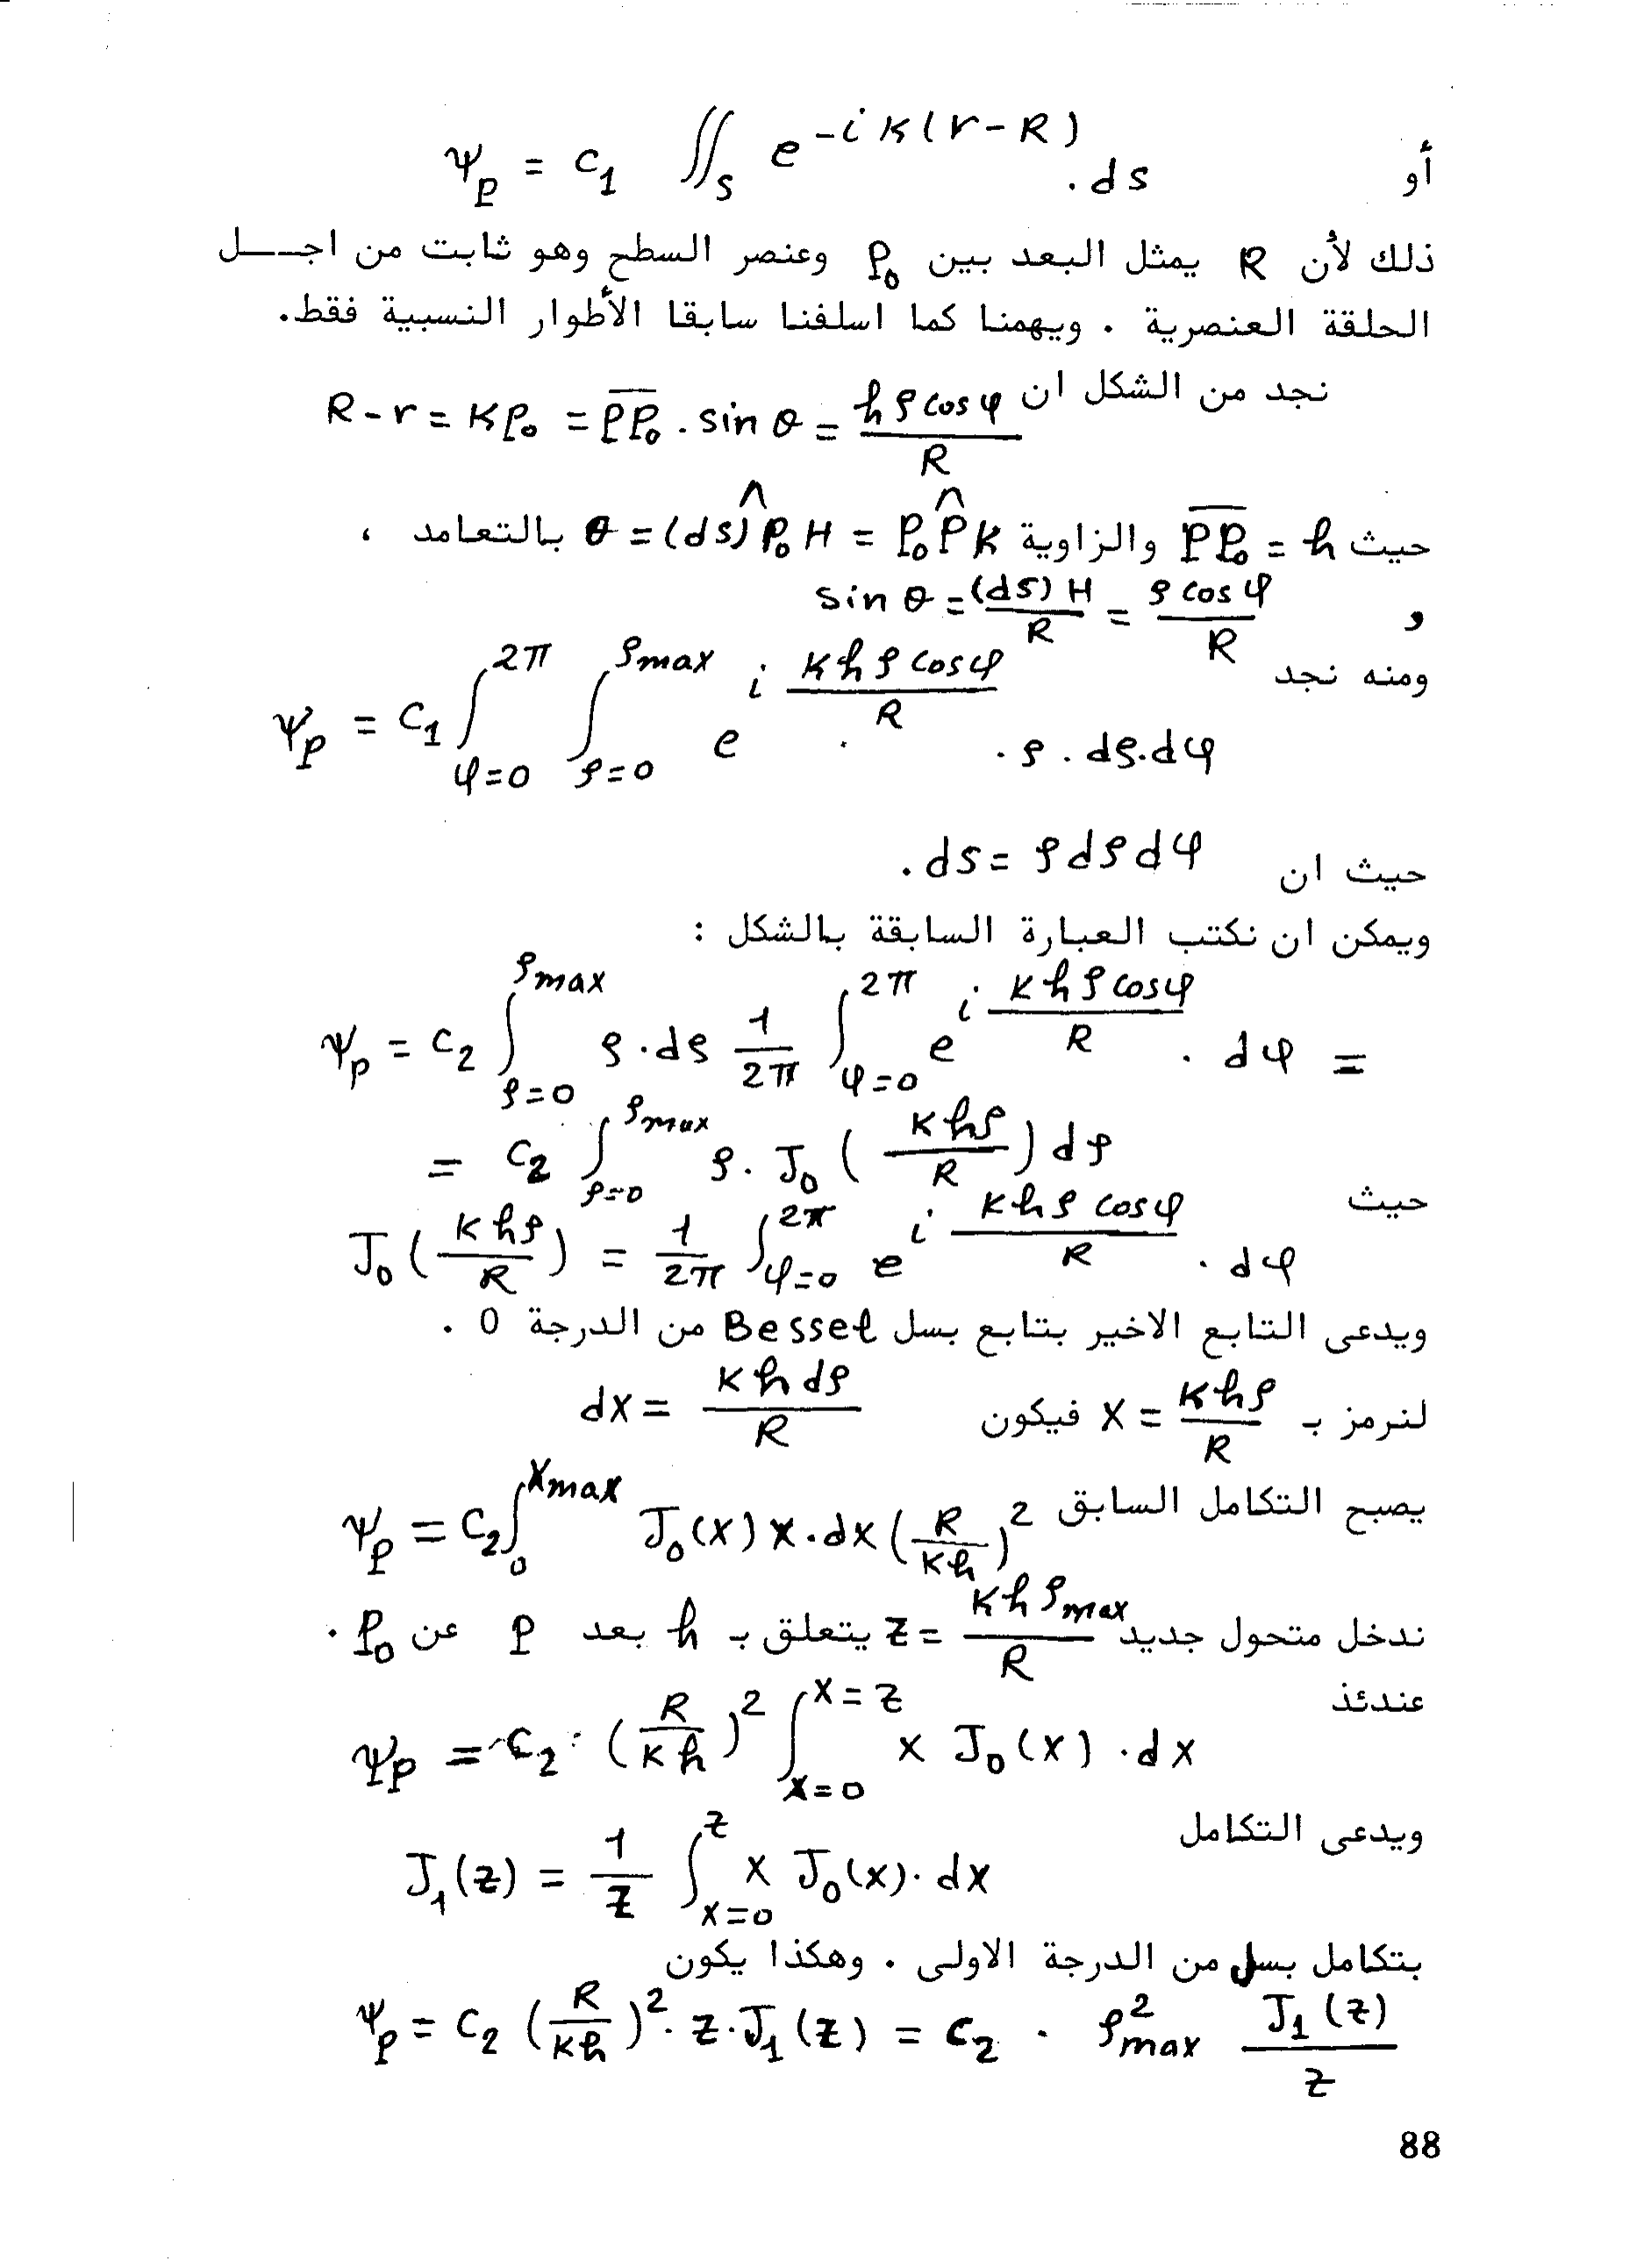 أو ψ_p = C_1 ∬_S e^{-iK(r-R)} . ds
ذلك لأن R يمثل البعد بين P_0 وعنصر السطح وهو ثابت من اجــل
الحلقة العنصرية . ويهمنا كما اسلفنا سابقا الأطوار النسبية فقط.
نجد من الشكل ان R - r = KP_0 = \overline{PP_0} . sin θ = \frac{hρ cos φ}{R}
حيث \overline{PP_0} = h والزاوية θ = (ds)\hat{P_0}H = P_0\hat{P}K بالتعامد ،
و sin θ = \frac{(ds)H}{R} = \frac{ρ cos φ}{R}
ومنه نجد
ψ_p = C_1 ∫_{φ=0}^{2π} ∫_{ρ=0}^{ρmax} e^{i \frac{Khρ cos φ}{R}} . ρ . dρ.dφ
حيث ان ds = ρdρdφ .
ويمكن ان نكتب العبارة السابقة بالشكل :
ψ_p = C_2 ∫_{ρ=0}^{ρmax} ρ.dρ \frac{1}{2π} ∫_{φ=0}^{2π} e^{i \frac{Khρ cos φ}{R}} . dφ =
= C_2 ∫_{ρ=0}^{ρmax} ρ. J_0 (\frac{Khρ}{R}) dρ
حيث
J_0 (\frac{Khρ}{R}) = \frac{1}{2π} ∫_{φ=0}^{2π} e^{i \frac{Khρ cos φ}{R}} . dφ
ويدعى التابع الاخير بتابع بسل Bessel من الدرجة 0 .
لنرمز بـ X = \frac{Khρ}{R} فيكون dX = \frac{Khdρ}{R}
يصبح التكامل السابق ψ_p = C_2 ∫_0^{Xmax} J_0(X) X.dX (\frac{R}{Kh})^2
ندخل متحول جديد Z = \frac{Khρ_{max}}{R} يتعلق بـ h بعد P عن P_0 .
عندئذ
ψ_p = C_2 . (\frac{R}{Kh})^2 ∫_{X=0}^{X=Z} X J_0(X) .dX
ويدعى التكامل
J_1(Z) = \frac{1}{Z} ∫_{X=0}^{Z} X J_0(X). dX
بتكامل بسل من الدرجة الاولى . وهكذا يكون
ψ_p = C_2 (\frac{R}{Kh})^2 . Z.J_1(Z) = C_2 . ρ_{max}^2 \frac{J_1(Z)}{Z}
88